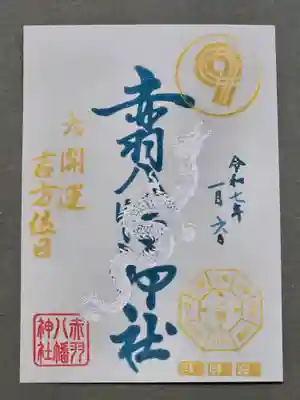 令和七年
一月六日
赤羽八幡神社
大開運
吉方位日
赤羽
八幡
神社